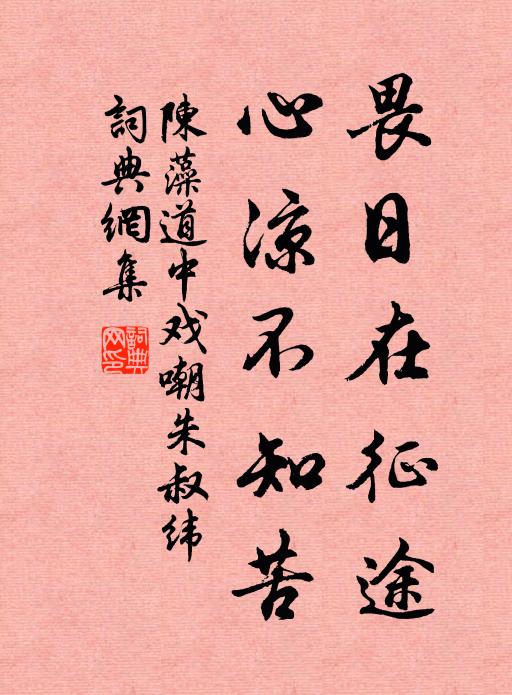 畏日在征途
心凉不知苦
陳藻道中戏嘲朱叔纬
詞典網集
詞典網印